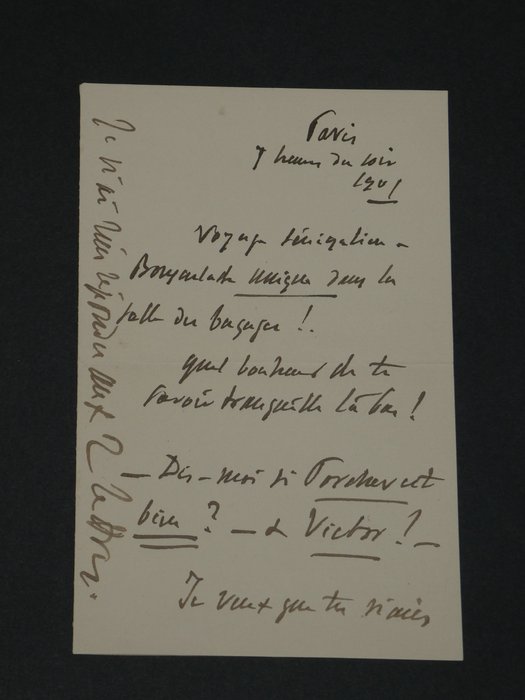 Paris
7 heures du soir
1901
Voyage sénégalien -
Bousculade unique dans la
salle des bagages !.
quel bonheur de te
savoir tranquille là bas !
— Dis-moi si Porcher est
bien ? — & Victor ! —
Je veux que tu n'aies
Je n'ai rien répondu aux 2 lettres.